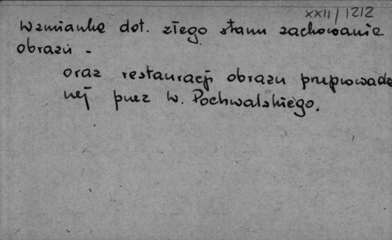 XXII/1212
Wzmianka dot. złego stanu zachowania
obrazu -
oraz restauracji obrazu przeprowadzo
nej przez W. Pochwalskiego.